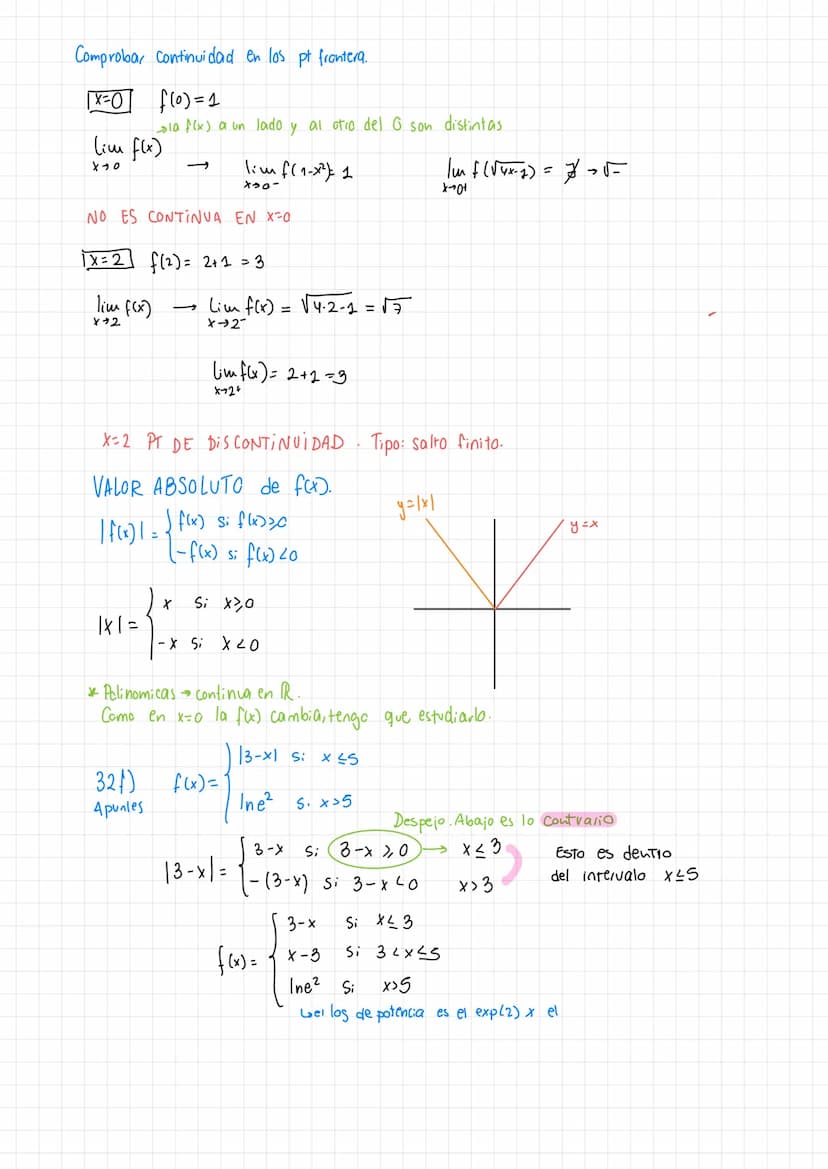 Comprobar continuidad en los pt frontera.
x=0 f(0)=1
→ la f(x) a un lado y al otro del 0 son distintas
lim f(x) x→0 → lim f(1-x²)= 1 x→0⁻ lim f(√4x-1) = ∄ → √-
x→0⁺
NO ES CONTINUA EN x=0
x=2 f(2)= 2+1 = 3
lim f(x) x→2 → lim f(x) = √4·2-1 = √7 x→2⁻
lim f(x)= 2+1=3 x→2⁺
x=2 PT DE DISCONTINUIDAD. Tipo: salto finito.
VALOR ABSOLUTO de f(x).
|f(x)| = { f(x) si f(x)≥0
-f(x) si f(x)<0
y=|x|
y=x
|x| = { x si x≥0
-x si x<0
* Polinomicas → continua en ℝ.
Como en x=0 la f(x) cambia, tengo que estudiarlo.
32f) f(x)= { |3-x| si x≤5
Apuntes
lne² si x>5
Despejo. Abajo es lo contrario
|3-x| = { 3-x si 3-x≥0 → x≤3
-(3-x) si 3-x<0 x>3
Esto es dentro
del intervalo x≤5
f(x)= { 3-x si x≤3
x-3 si 3<x≤5
lne² si x>5
el log de potencia es el exp(2) x el